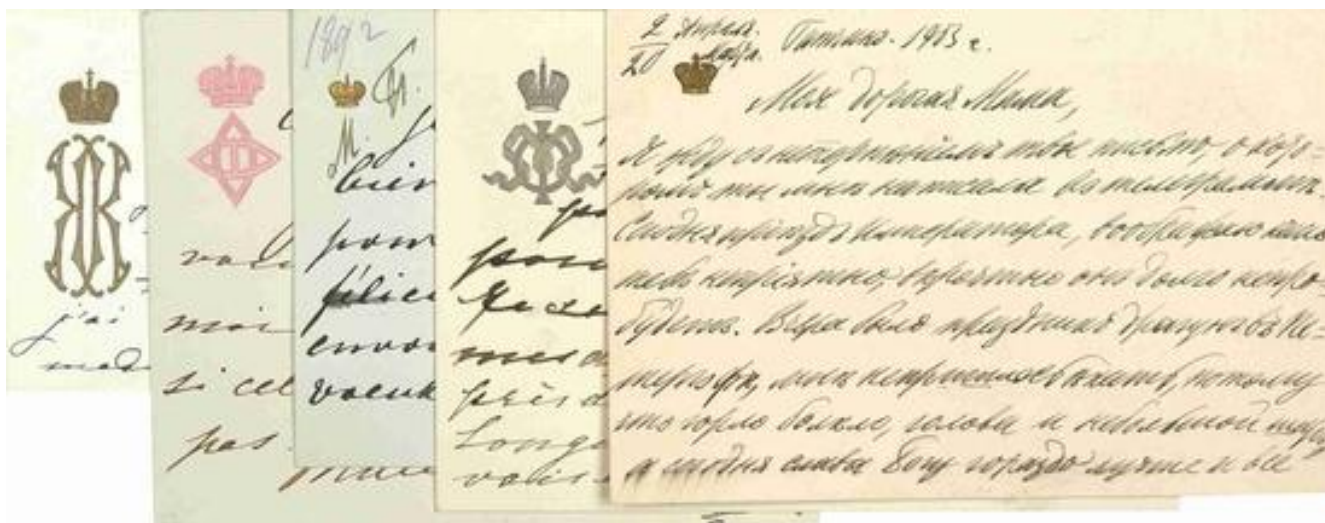 j'ai
mad
mi
si cel
pas
1892
M
bien
pour
félici
envo
pour
mes
près d
Longo
vous
2 Апреля.
20 Марта. Гатчино. 1903 г.
Моя дорогая Мама,
Я жду съ нетерпѣніемъ твое письмо, о кото-
ромъ ты мнѣ написала въ телеграммѣ.
Сегодня пріѣздъ Императора, воображаю какъ
тебѣ непріятно, вѣроятно онъ долго непро-
будетъ. Вчера былъ праздникъ драгунъ въ Пе-
тергофѣ, мнѣ непришлось ѣхать, потому
что горло болѣло, голова и небольшой
а сегодня слава Богу гораздо лучше и все